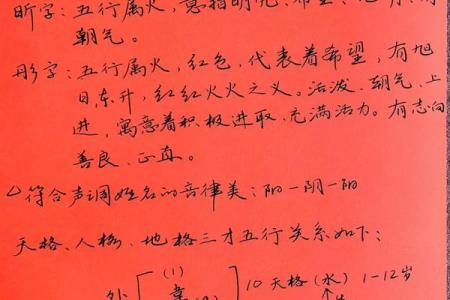 昕字：五行属火，意指明亮、希望、
朝气。
彤字：五行属火，红色，代表着希望，有旭
日东升，红红火火之义。活泼、朝气、上
进，寓意着积极进取、充满活力。有志向
善良、正直。
符合声调姓名的音律美：阳一阴一阳
天格、人格、地格三才五行关系如下：
外 (1) 10 天格（水）1-12岁